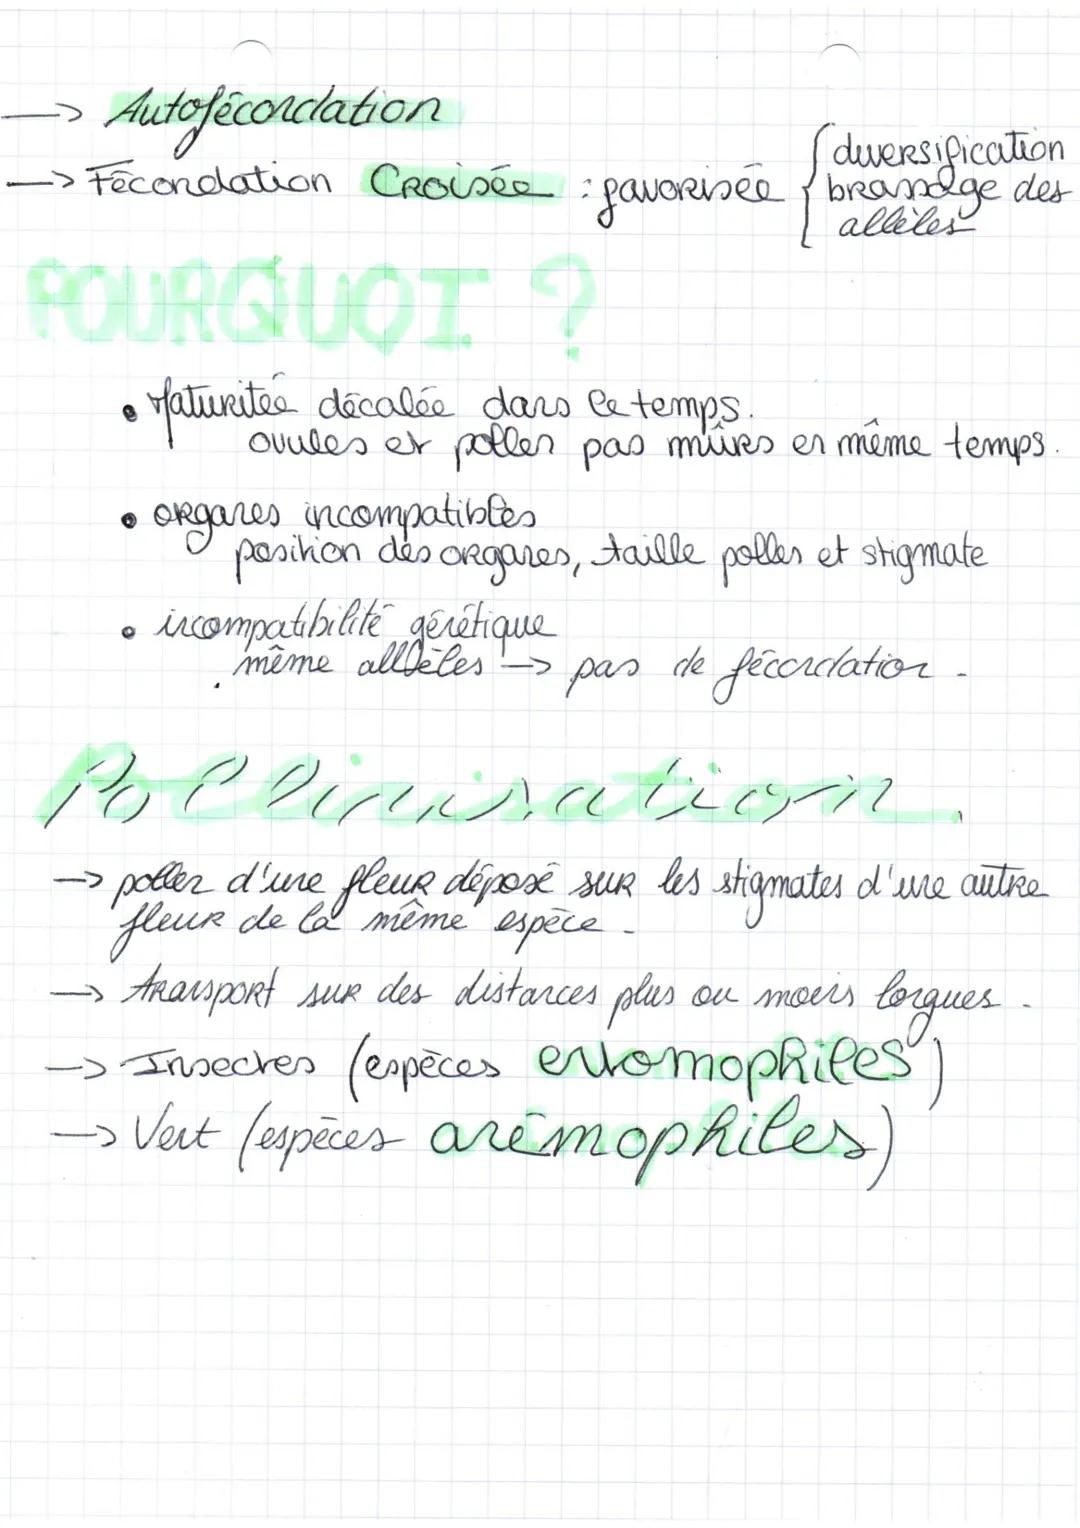 → Autofécondation
→ Fécondation Croisée : favorisée { diversification
brassage des
allèles
POURQUOI ?
• Maturitée décalée dans le temps.
ovules et pollen pas mûrs en même temps.
• organes incompatibles
position des organes, taille pollen et stigmate
• incompatibilité génétique
même allèles → pas de fécondation.
Pollinisation.
→ pollen d'une fleur déposé sur les stigmates d'une autre
fleur de la même espèce.
→ transport sur des distances plus ou moins longues.
→ Insectes (espèces entomophiles)
→ Vent (espèces anémophiles)